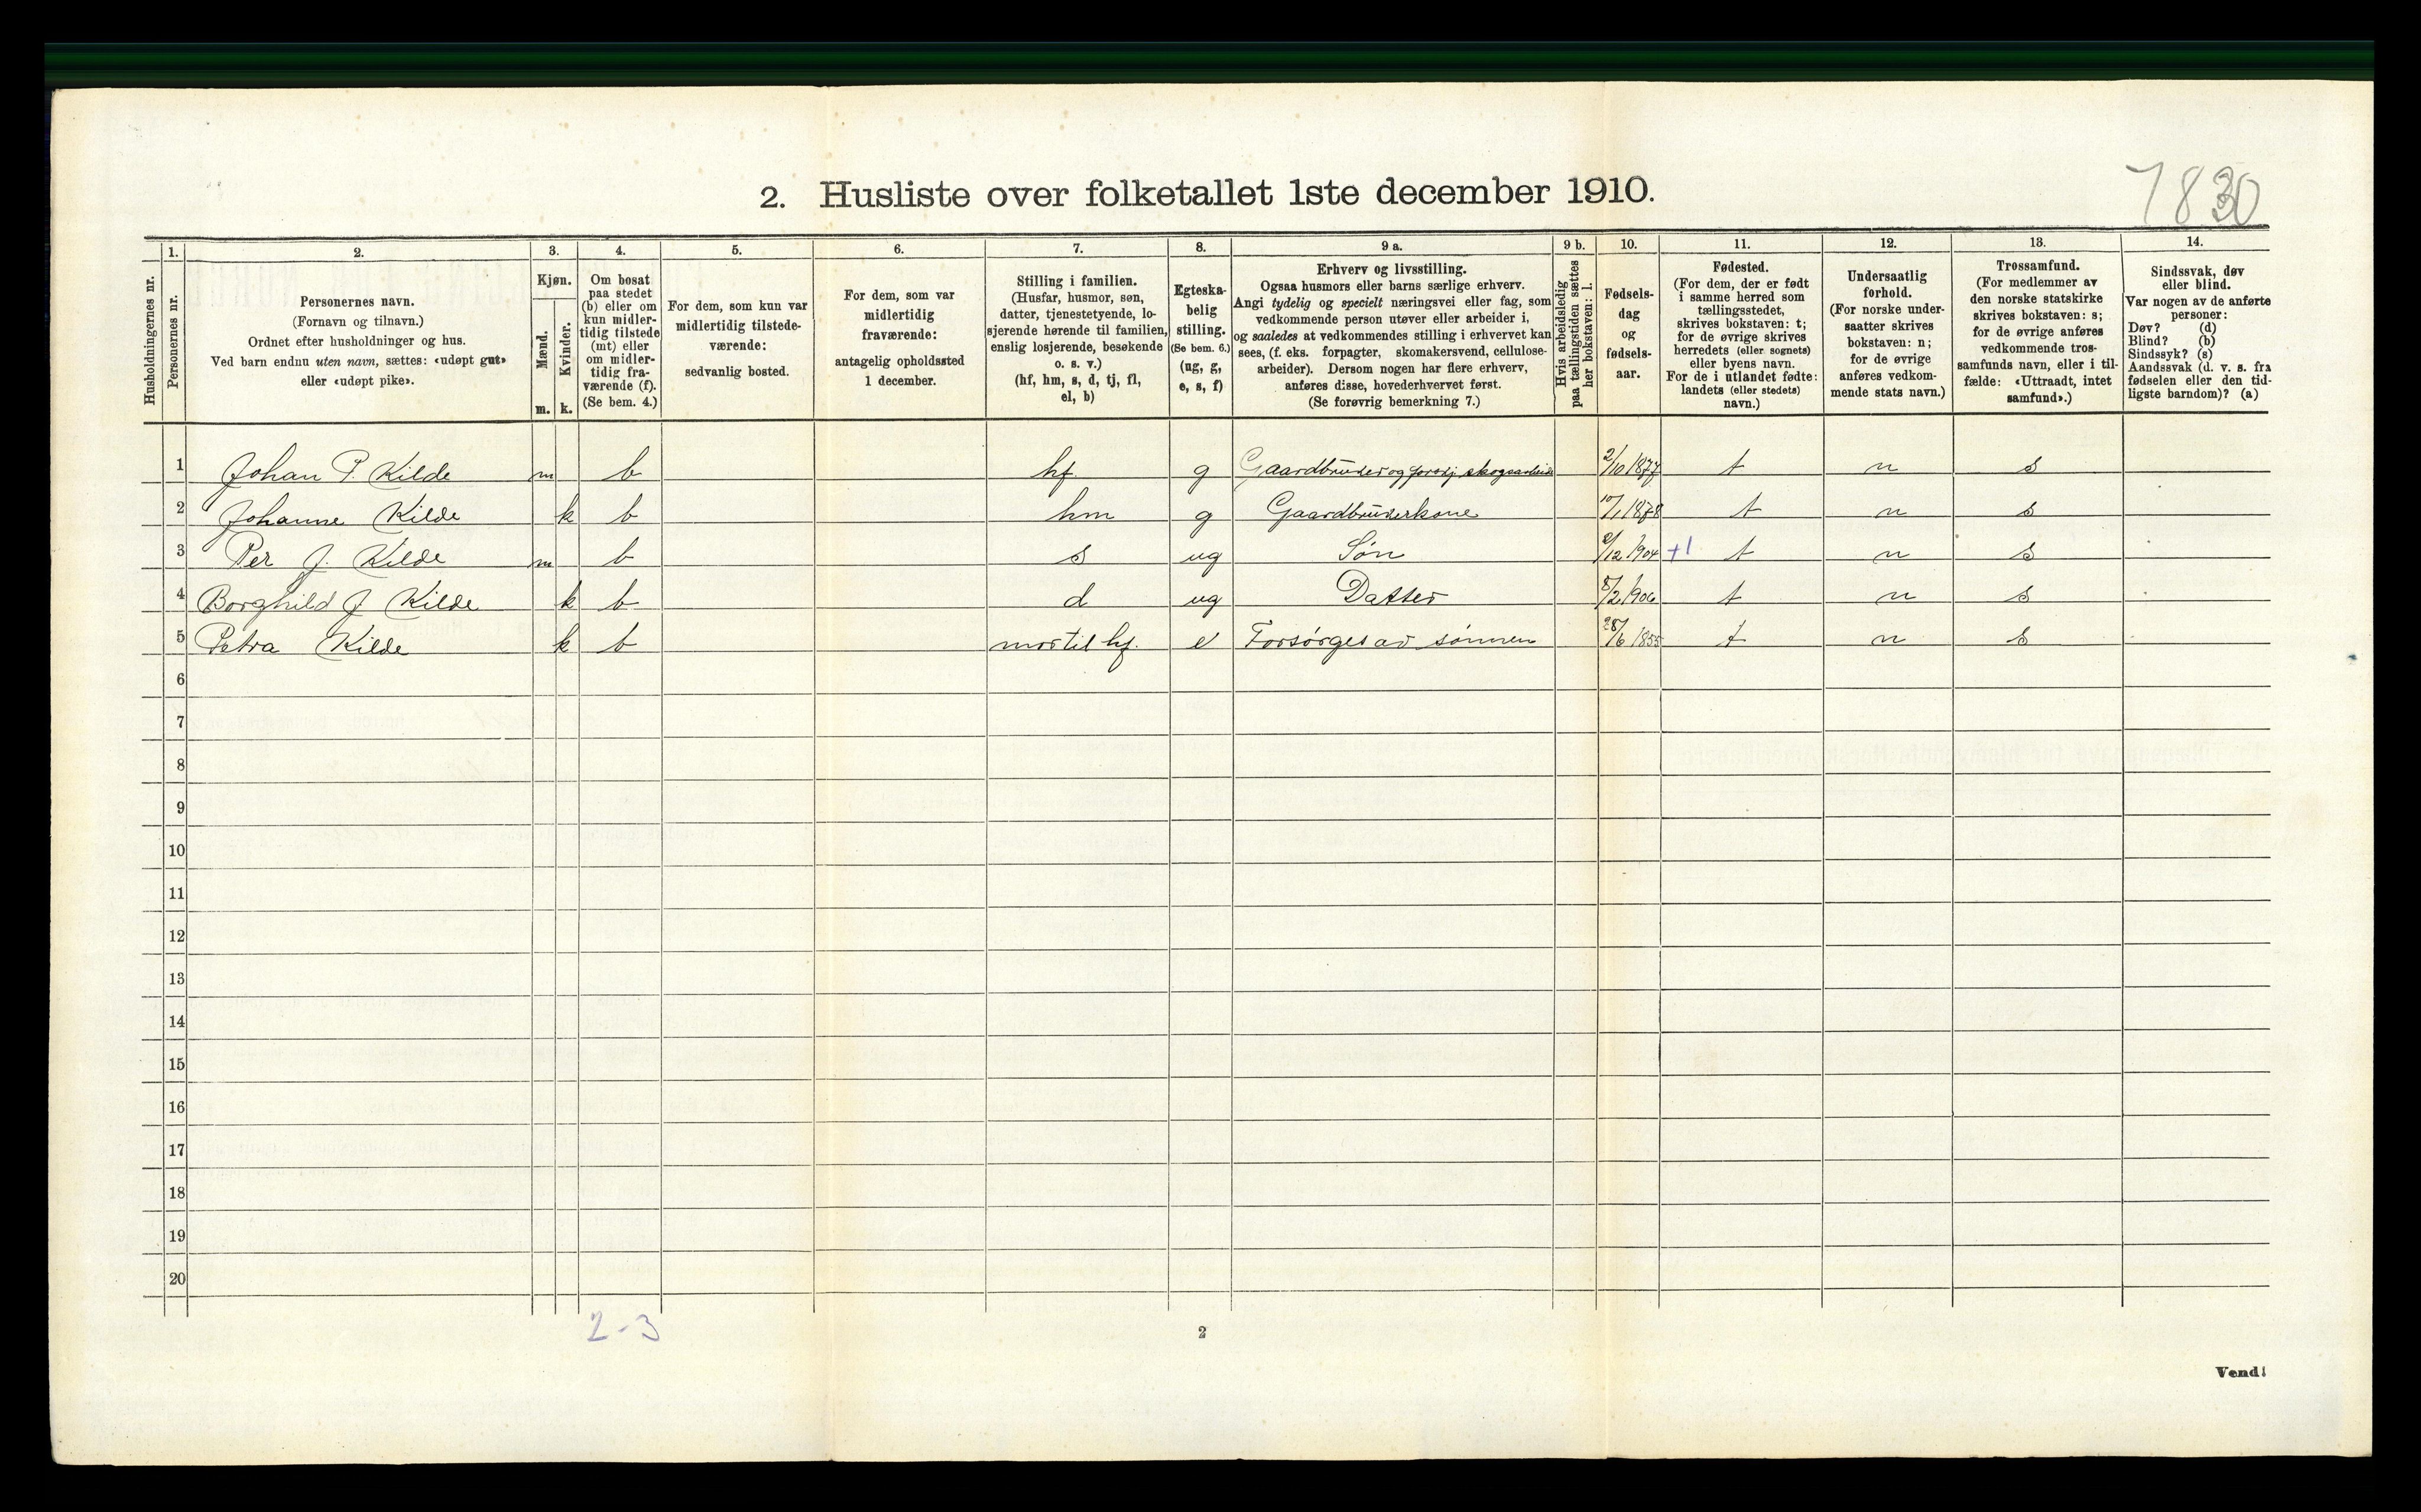 2. Husliste over folketallet 1ste december 1910.
7830
Husholdningernes nr.
1.
Personernes nr.
2.
Personernes navn.
(Fornavn og tilnavn.)
Ordnet efter husholdninger og hus.
Ved barn endnu uten navn, sættes: «udøpt gut»
eller «udøpt pike».
3.
Kjøn.
Mænd.
Kvinder.
m. k.
4.
Om bosat
paa stedet
(b) eller om
kun midler-
tidig tilstede
(mt) eller
om midler-
tidig fra-
værende (f).
(Se bem. 4.)
5.
For dem, som kun var
midlertidig tilstede-
værende:
sedvanlig bosted.
6.
For dem, som var
midlertidig
fraværende:
antagelig opholdssted
1 december.
7.
Stilling i familien.
(Husfar, husmor, søn,
datter, tjenestetyende, lo-
sjerende hørende til familien,
enslig losjerende, besøkende
o. s. v.)
(hf, hm, s, d, tj, fl,
el, b)
8.
Egteska-
belig
stilling.
(Se bem. 6.)
(ug, g,
e, s, f)
9 a.
Erhverv og livsstilling.
Ogsaa husmors eller barns særlige erhverv.
Angi tydelig og specielt næringsvei eller fag, som
vedkommende person utøver eller arbeider i,
og saaledes at vedkommendes stilling i erhvervet kan
sees, (f. eks. forpagter, skomakersvend, cellulose-
arbeider). Dersom nogen har flere erhverv,
anføres disse, hovederhvervet først.
(Se forøvrig bemerkning 7.)
9 b.
Hvis arbeidsledig
paa tællingstiden sættes
her bokstaven: l.
10.
Fødsels-
dag
og
fødsels-
aar.
11.
Fødested.
(For dem, der er født
i samme herred som
tællingsstedet,
skrives bokstaven: t;
for de øvrige skrives
herredets (eller sognets)
eller byens navn.
For de i utlandet fødte:
landets (eller stedets)
navn.)
12.
Undersaatlig
forhold.
(For norske under-
saatter skrives
bokstaven: n;
for de øvrige
anføres vedkom-
mende stats navn.)
13.
Trossamfund.
(For medlemmer av
den norske statskirke
skrives bokstaven: s;
for de øvrige anføres
vedkommende tros-
samfunds navn, eller i til-
fælde: «Uttraadt, intet
samfund».)
14.
Sindssvak, døv
eller blind.
Var nogen av de anførte
personer:
Døv? (d)
Blind? (b)
Sindssyk? (s)
Aandssvak (d. v. s. fra
fødselen eller den tid-
ligste barndom)? (a)
1 Johan P. Kilde m b hf g Gaardbruker og forøvrig skogsarbeid 2/10 1877 t n s
2 Johanne Kilde k b hm g Gaardbrukerkone 10/1 1878 t n s
3 Per J. Kilde m b s ug Søn 2/12 1904 +1 t n s
4 Borghild J Kilde k b d ug Datter 8/2 1906 t n s
5 Petra Kilde k b mor til hf. e Forsørges av sønnen 28/6 1855 t n s
6
7
8
9
10
11
12
13
14
15
16
17
18
19
20
2-3
2
Vend!